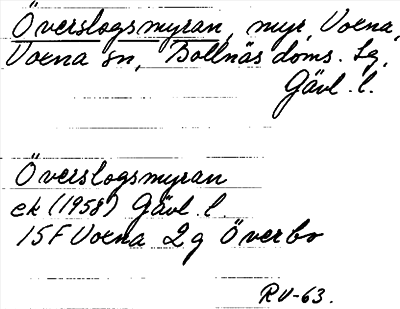 Överslogsmyran, myr, Voxna,
Voxna sn, Bollnäs doms. sg,
Gävl. l.
Överslogsmyran
ek (1958) Gävl. l.
15F Voxna 2g Överbo
RV-63.